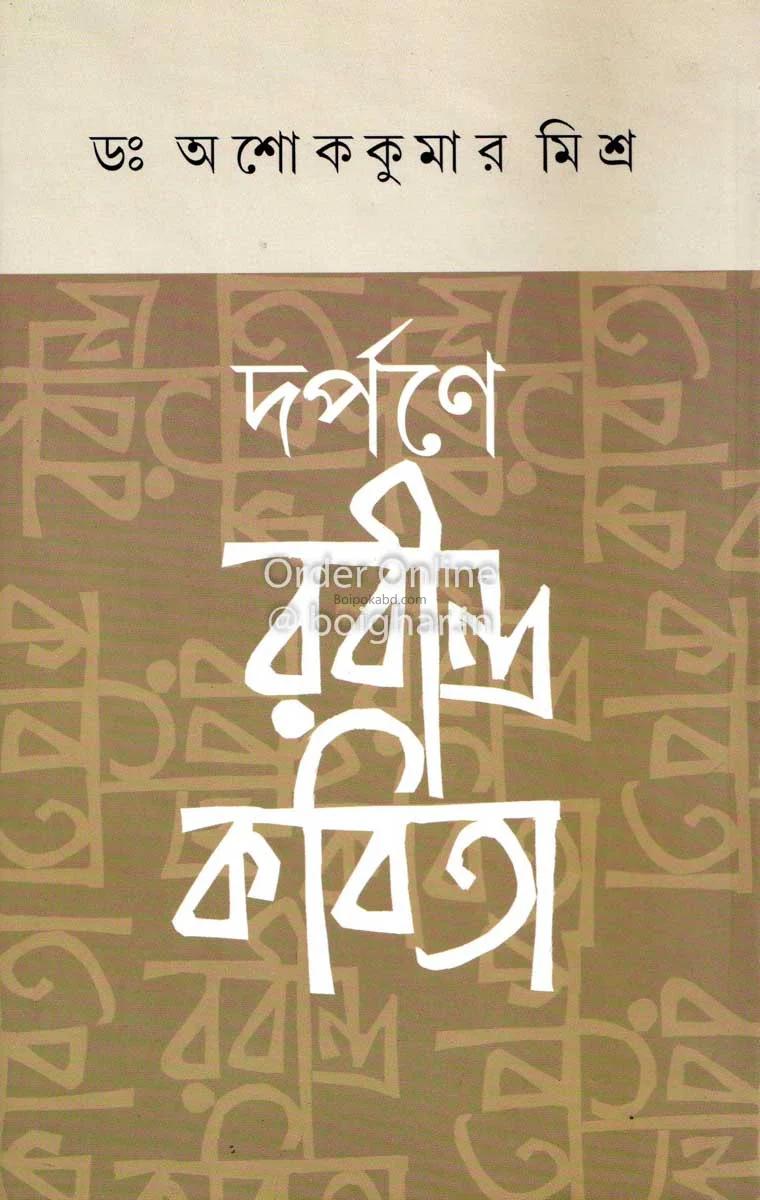 ডঃ অশোককুমার মিশ্র
দর্পণে
রবীন্দ্র
Order Online
Boipokabd.com
@ boighar.in
কবিতা